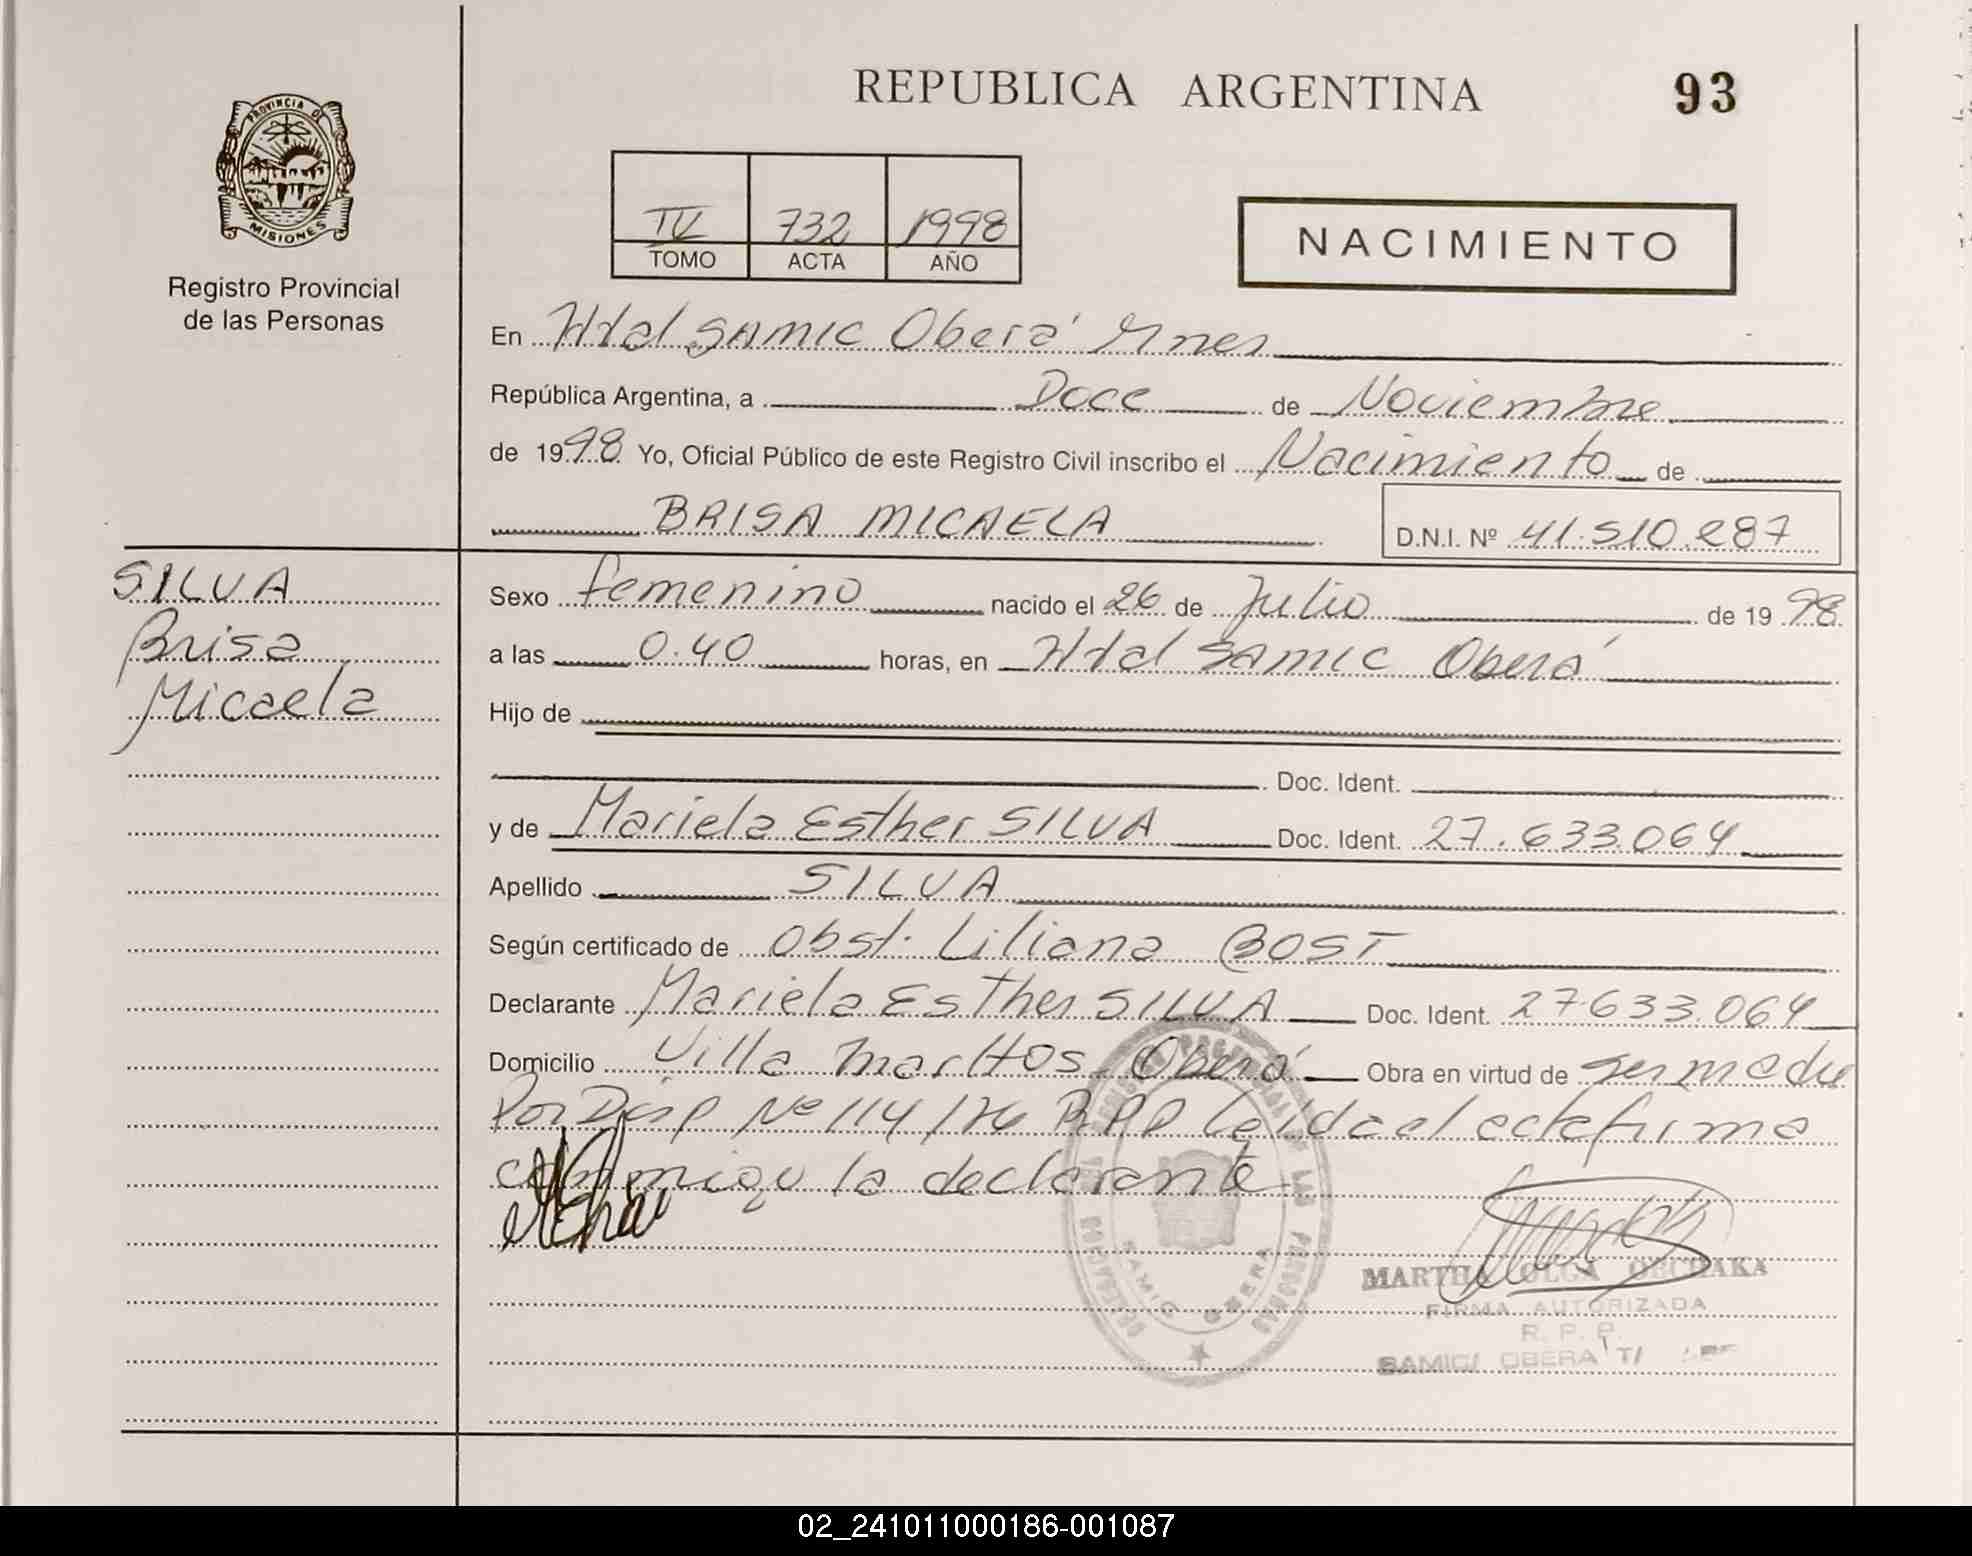 REPUBLICA ARGENTINA
93
PROVINCIA DE
MISIONES
Registro Provincial
de las Personas
IV 732 1998
TOMO ACTA AÑO
NACIMIENTO
En Htal SAMIC Oberá Mnes
República Argentina, a Doce de Noviembre
de 1998 Yo, Oficial Público de este Registro Civil inscribo el Nacimiento de
BRISA MICAELA
D.N.I. Nº 41.510.287
SILVA
Brisa
Micaela
Sexo femenino nacido el 26 de Julio de 1998
a las 0.40 horas, en Htal Samic Oberá
Hijo de
Doc. Ident.
y de Mariela Esther SILVA Doc. Ident. 27.633.064
Apellido SILVA
Según certificado de Obst. Liliana BOST
Declarante Mariela Esther SILVA Doc. Ident. 27.633.064
Domicilio Villa Oberá Obra en virtud de ser madre
Por Disp Nº 114/ RPP Leida el acta firma
conmigo la declarante
SAMIC OBERA
MARTHA OLGA
FIRMA AUTORIZADA
R. P. P.
SAMIC/ OBERA
02_241011000186-001087